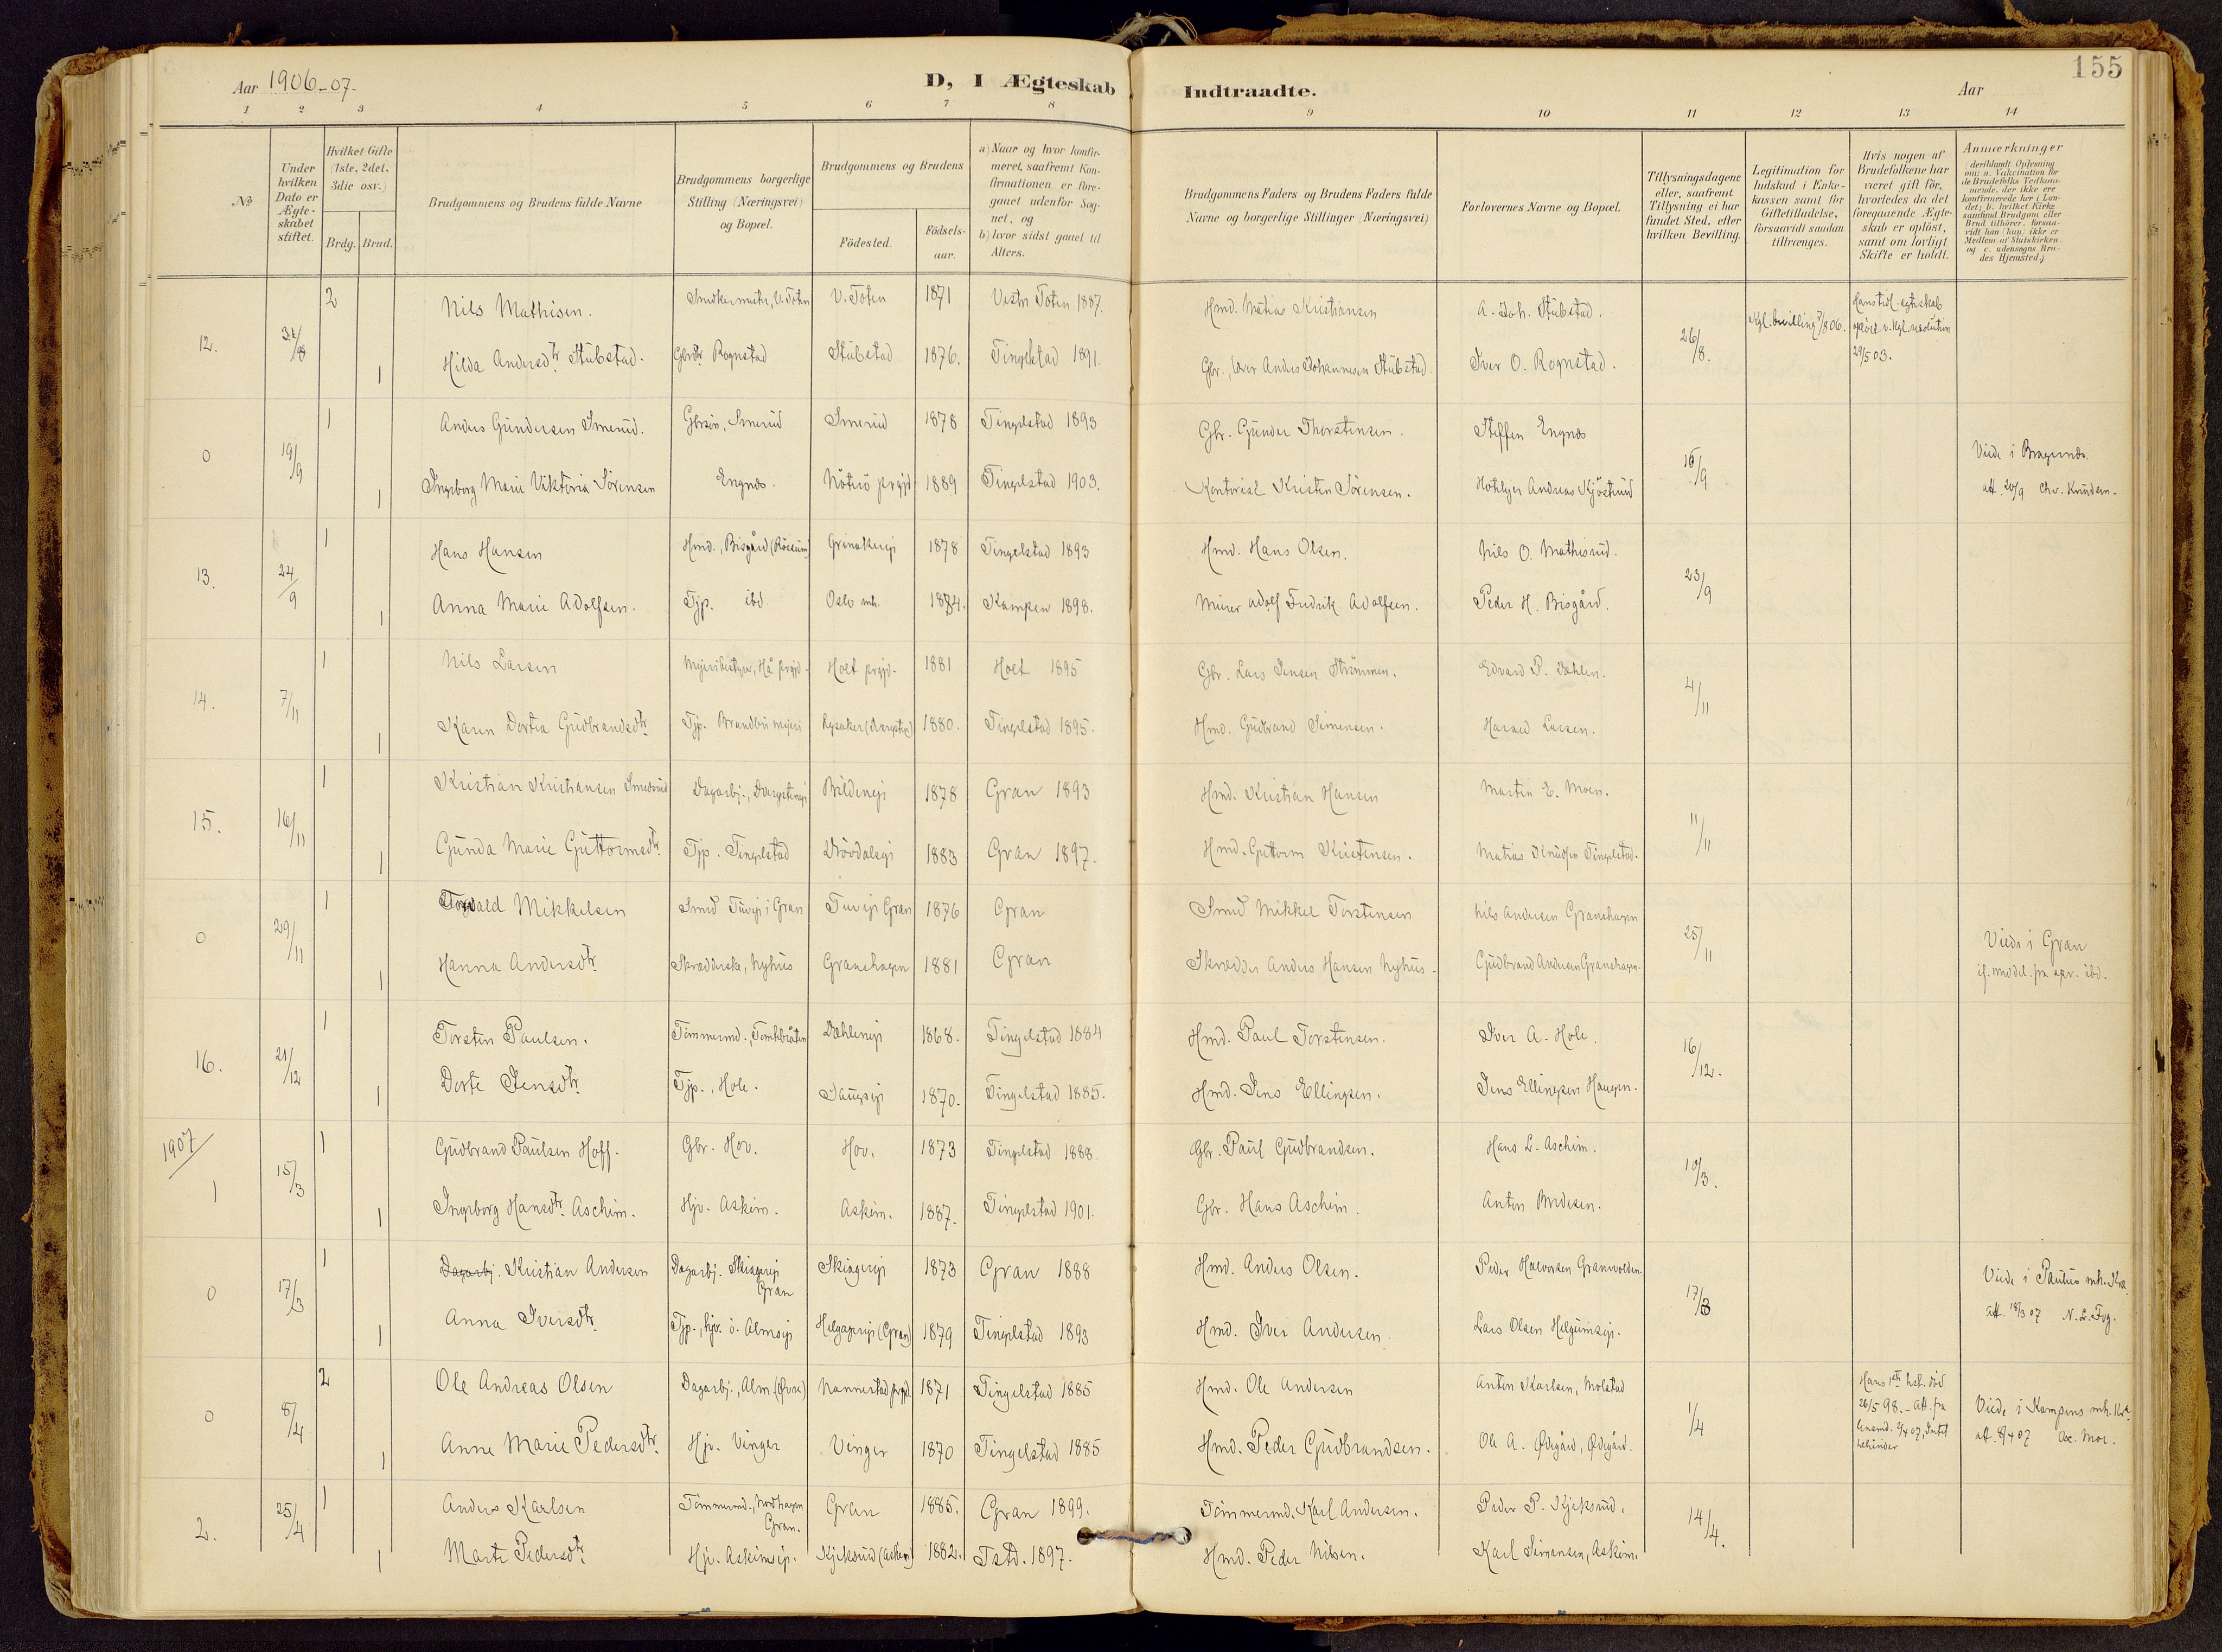 155
Aar 1906-07.
D, I Ægteskab Indtraadte.
Aar
1 2 3 4 5 6 7 8 9 10 11 12 13 14
No
Under hvilken Dato er Ægteskabet stiftet.
Hvilket Gifte (1ste, 2det, 3die osv.)
Brdg. Brud.
Brudgommens og Brudens fulde Navne
Brudgommens borgerlige Stilling (Næringsvei) og Bopæl.
Brudgommens og Brudens
Födested.
Födsels-aar.
a) Naar og hvor konfirmeret, saafremt Konfirmationen er foregaaet udenfor Sognet, og
b) hvor sidst gaaet til Alters.
Brudgommens Faders og Brudens Faders fulde Navne og borgerlige Stillinger (Næringsvei)
Forlovernes Navne og Bopæl.
Tillysningsdagene eller, saafremt Tillysning ei har fundet Sted, efter hvilken Bevilling.
Legitimation for Indskud i Enkekassen samt for Giftetilladelse, forsaavidt saadan tiltrænges.
Hvis nogen af Brudefolkene har været gift för, hvorledes da det foregaaende Ægteskab er oplöst, samt om lovligt Skifte er holdt.
Anmærkninger
12. 31/8 2 Nils Mathisen. V. Toten 1871 Vestr. Toten 1887. Hmd. Matias Kristiansen A. Joh. Stubstad. 26/8. Kgl. bevilling
Hans tidl. egteskab opløst v. kgl. resolution 29/5 03.
1 Hilda Andersdtr. Stubstad. Gbrdtr. Rognstad Stubstad 1876. Tingelstad 1891. Gbr., Anders Johannesen Stubstad. Iver O. Rognstad.
0 19/9 1 Anders Gundersen Smerud. Gbrsön, Smerud Smerud 1878 Tingelstad 1893 Gbr. Gunder Thorstensen. Steffen Engnæs 16/9 Viede i Bragernæs.
1 Ingeborg Marie Viktoria Sörensen Engnæs. Nöterö prgjd 1889 Tingelstad 1903. Kontorist Kristen Sörensen. Andreas Kjöstrud att. 20/9 Chr. Knudsen.
13. 24/9 1 Hans Hansen Hmd., Bisgård (Röisum) Grinakerejr 1878 Tingelstad 1893 Hmd. Hans Olsen. Nils O. Mathisrud. 23/9
1 Anna Marie Adolfsen. Tjp. ibd Oslo mh. 1884. Kampen 1898. Murer Adolf Fredrik Adolfsen. Peder H. Bisgård.
14. 7/11 1 Nils Larsen Meieribestyrer, Hå prgjd. Holt prgjd. 1881 Holt 1895 Gbr. Lars Jensen Strømmen. Edvard P. Dæhlen. 4/11
1 Karen Dortea Gudbrandsdtr Tjp. Brandbu meieri 1880. Tingelstad 1895. Hmd. Gudbrand Simensen. Harald Larsen.
15. 16/11 1 Kristian Kristiansen Smedsrud Dagarbj., Bildenejr 1878 Gran 1893 Hmd. Kristian Hansen Martin E. Moen. 11/11
1 Gunda Marie Guttormsdtr. Tjp. Tingelstad 1883 Gran 1897. Hmd. Guttorm Kristensen. Matias Knudsen Tingelstad.
0 29/11 1 Torvald Mikkelsen Smed Tuvejr i Gran Tuvejr Gran 1876 Gran Smed Mikkel Torstensen Nils Andersen Granehagen 25/11 Viede i Gran
1 Hanna Andersdtr. Skrædderske, Nyhus Granehagen 1881 Gran Skrædder Anders Hansen Nyhus. Gudbrand Andersen Granehagen. if. meddel. fra spr. ibd.
16. 21/12 1 Torsten Paulsen. Tömmermd., Tomtebråten Dæhlenejr 1868. Tingelstad 1884 Hmd. Paul Torstensen. Iver A. Hole. 16/12.
1 Dorte Jensdtr. Tjp., Hole. 1870. Tingelstad 1885. Hmd. Jens Ellingsen. Jens Ellingsen Haugen.
1907
1 15/3 1 Gudbrand Paulsen Hoff. Gbr. Hov. Hov. 1873 Tingelstad 1888 Gbr. Paul Gudbrandsen. Hans L. Aschim. 10/3.
1 Ingeborg Hansdtr. Aschim. Hjv. Askim. Askim. 1887. Tingelstad 1901. Gbr. Hans Aschim. Anton
0 17/3 1 Dagarbj. Kristian Andersen Dagarbj. Skiagerejr Gran Skiagerejr 1873 Gran 1888 Hmd. Anders Olsen. Peder Halvorsen Granvolden 17/3 Viede i Paulus mh. Kra.
1 Anna Iversdtr. Tjp., hjv. ö. Almsejr Helgagerejr (Gran) 1879 Tingelstad 1893 Hmd. Iver Andersen. Lars Olsen Helgumsejr. att. 18/3 07 N. L.
0 8/4 2 Ole Andreas Olsen Dagarbj., Alm (Øvre) Nannestad prgjd. 1871 Tingelstad 1885 Hmd. Ole Andersen Anton Karlsen, Molstad 1/4 Hans 1ste hst. död 26/5 98. - Att. fra lensmd. 2/4 07, Intet behinder Viede i Kampens mh. Kra.
1 Anne Marie Pedersdtr. Hjv. Vinger Vinger 1870 Tingelstad 1885 Hmd. Peder Gudbrandsen. Ole A. Ødegård, Ødegård. att. 8/4 07
2. 25/4 1 Anders Karlsen Tömmermd., Nordhagen Gran. Gran 1885. Gran 1899. Tömmermd. Karl Andersen. Peder P. Kjeksrud. 14/4.
1 Marte Pedersdtr. Hjv. Askimsejr. Kjeksrud (Askim) 1882. Tstd. 1897. Hmd. Peder Nilsen. Karl Simensen, Askim.